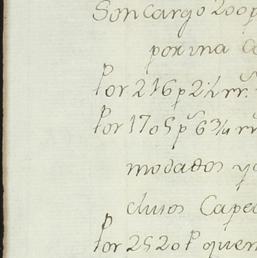 Son cargo 200 p
por una
Por 216 p 2 1/2 rr.
Por 1705 p 6 3/4 rr
modados y
clusos
Por 2520 p que